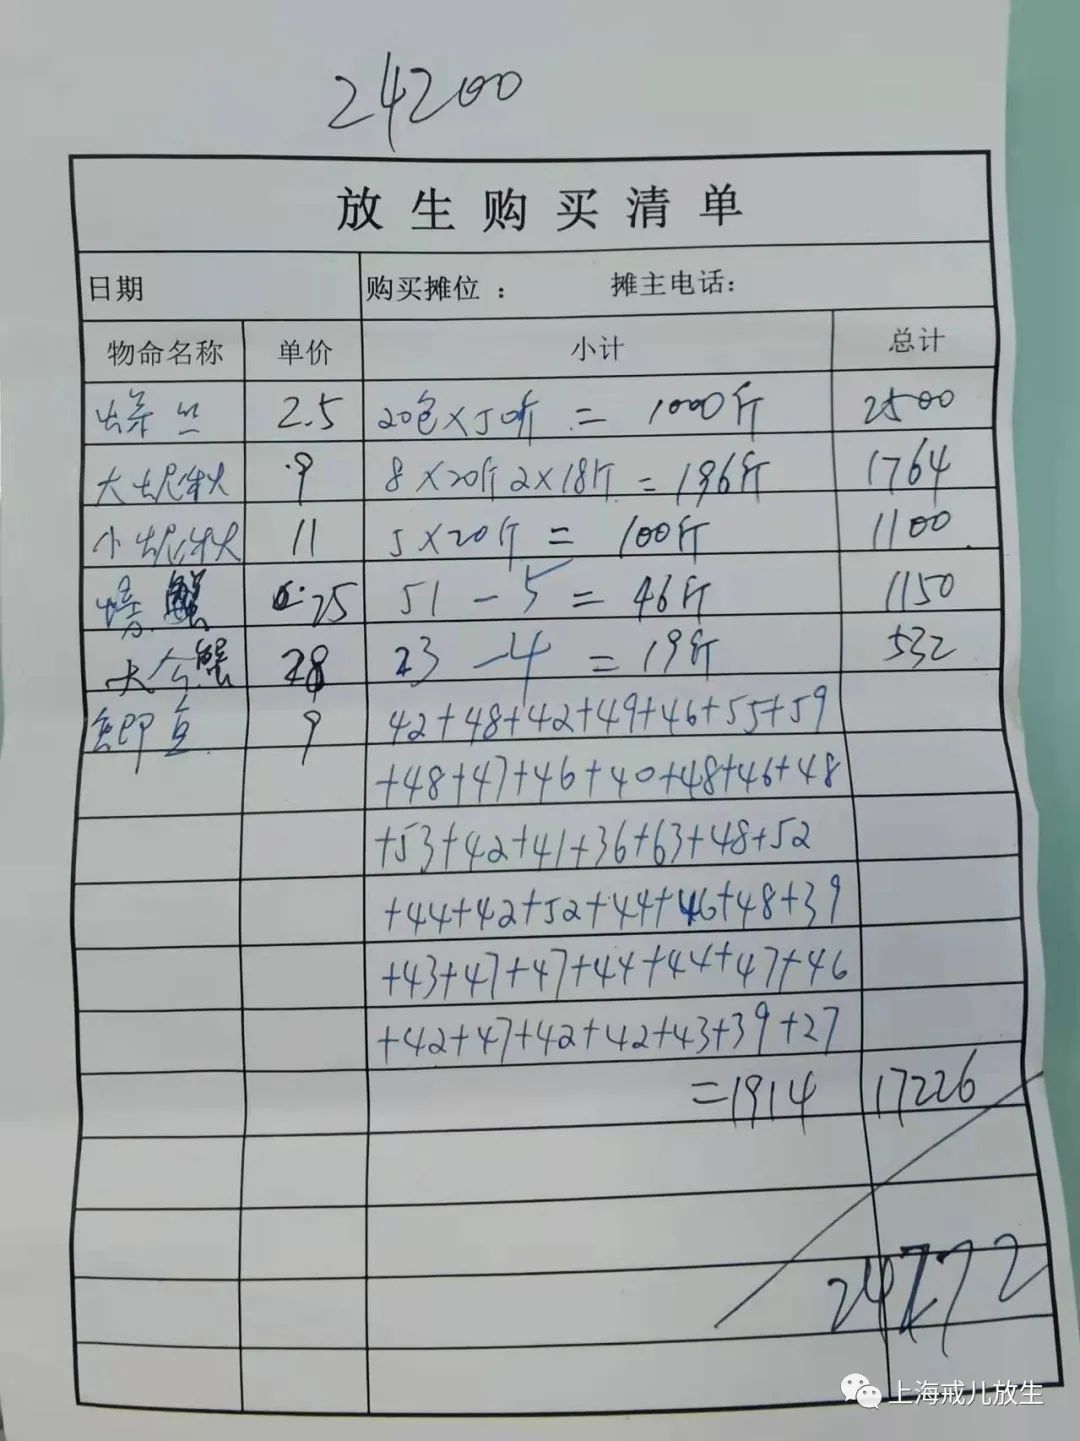 24200
放生购买清单
日期 购买摊位： 摊主电话：
物命名称 单价 小计 总计
螺丝 2.5 20包×50斤 = 1000斤 2500
大泥秋 9 8×20斤2×18斤 = 196斤 1764
小泥秋 11 5×20斤 = 100斤 1100
螃蟹 25 51-5 = 46斤 1150
大令蟹 28 23-4 = 19斤 532
鲫鱼 9 42+48+42+49+46+55+59
+48+47+46+40+48+46+48
+53+42+41+36+63+48+52
+44+42+52+44+46+48+39
+43+47+47+44+44+47+46
+42+47+42+42+43+39+27
=1914 17226
24272
上海戒儿放生